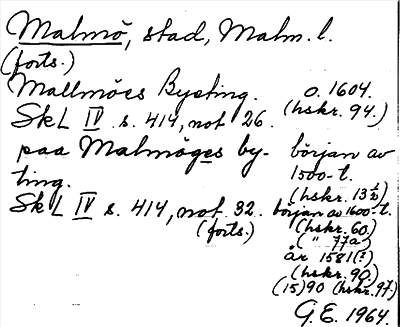 Malmö, stad, Malm. l.
(forts.)
Mallmöes Bysting. o. 1604.
SkL IV s. 414, not 26. (hskr. 94.)
paa Malmöges by- början av
ting. 1500-t.
(hskr. 13
SkL IV s. 414, not. 32. början av 1600-t.
(forts.) (hskr. 60.)
(" 77a)
år 1581(?)
(hskr. 90.)
(15)90 (hskr. 97.)
G.E. 1964.